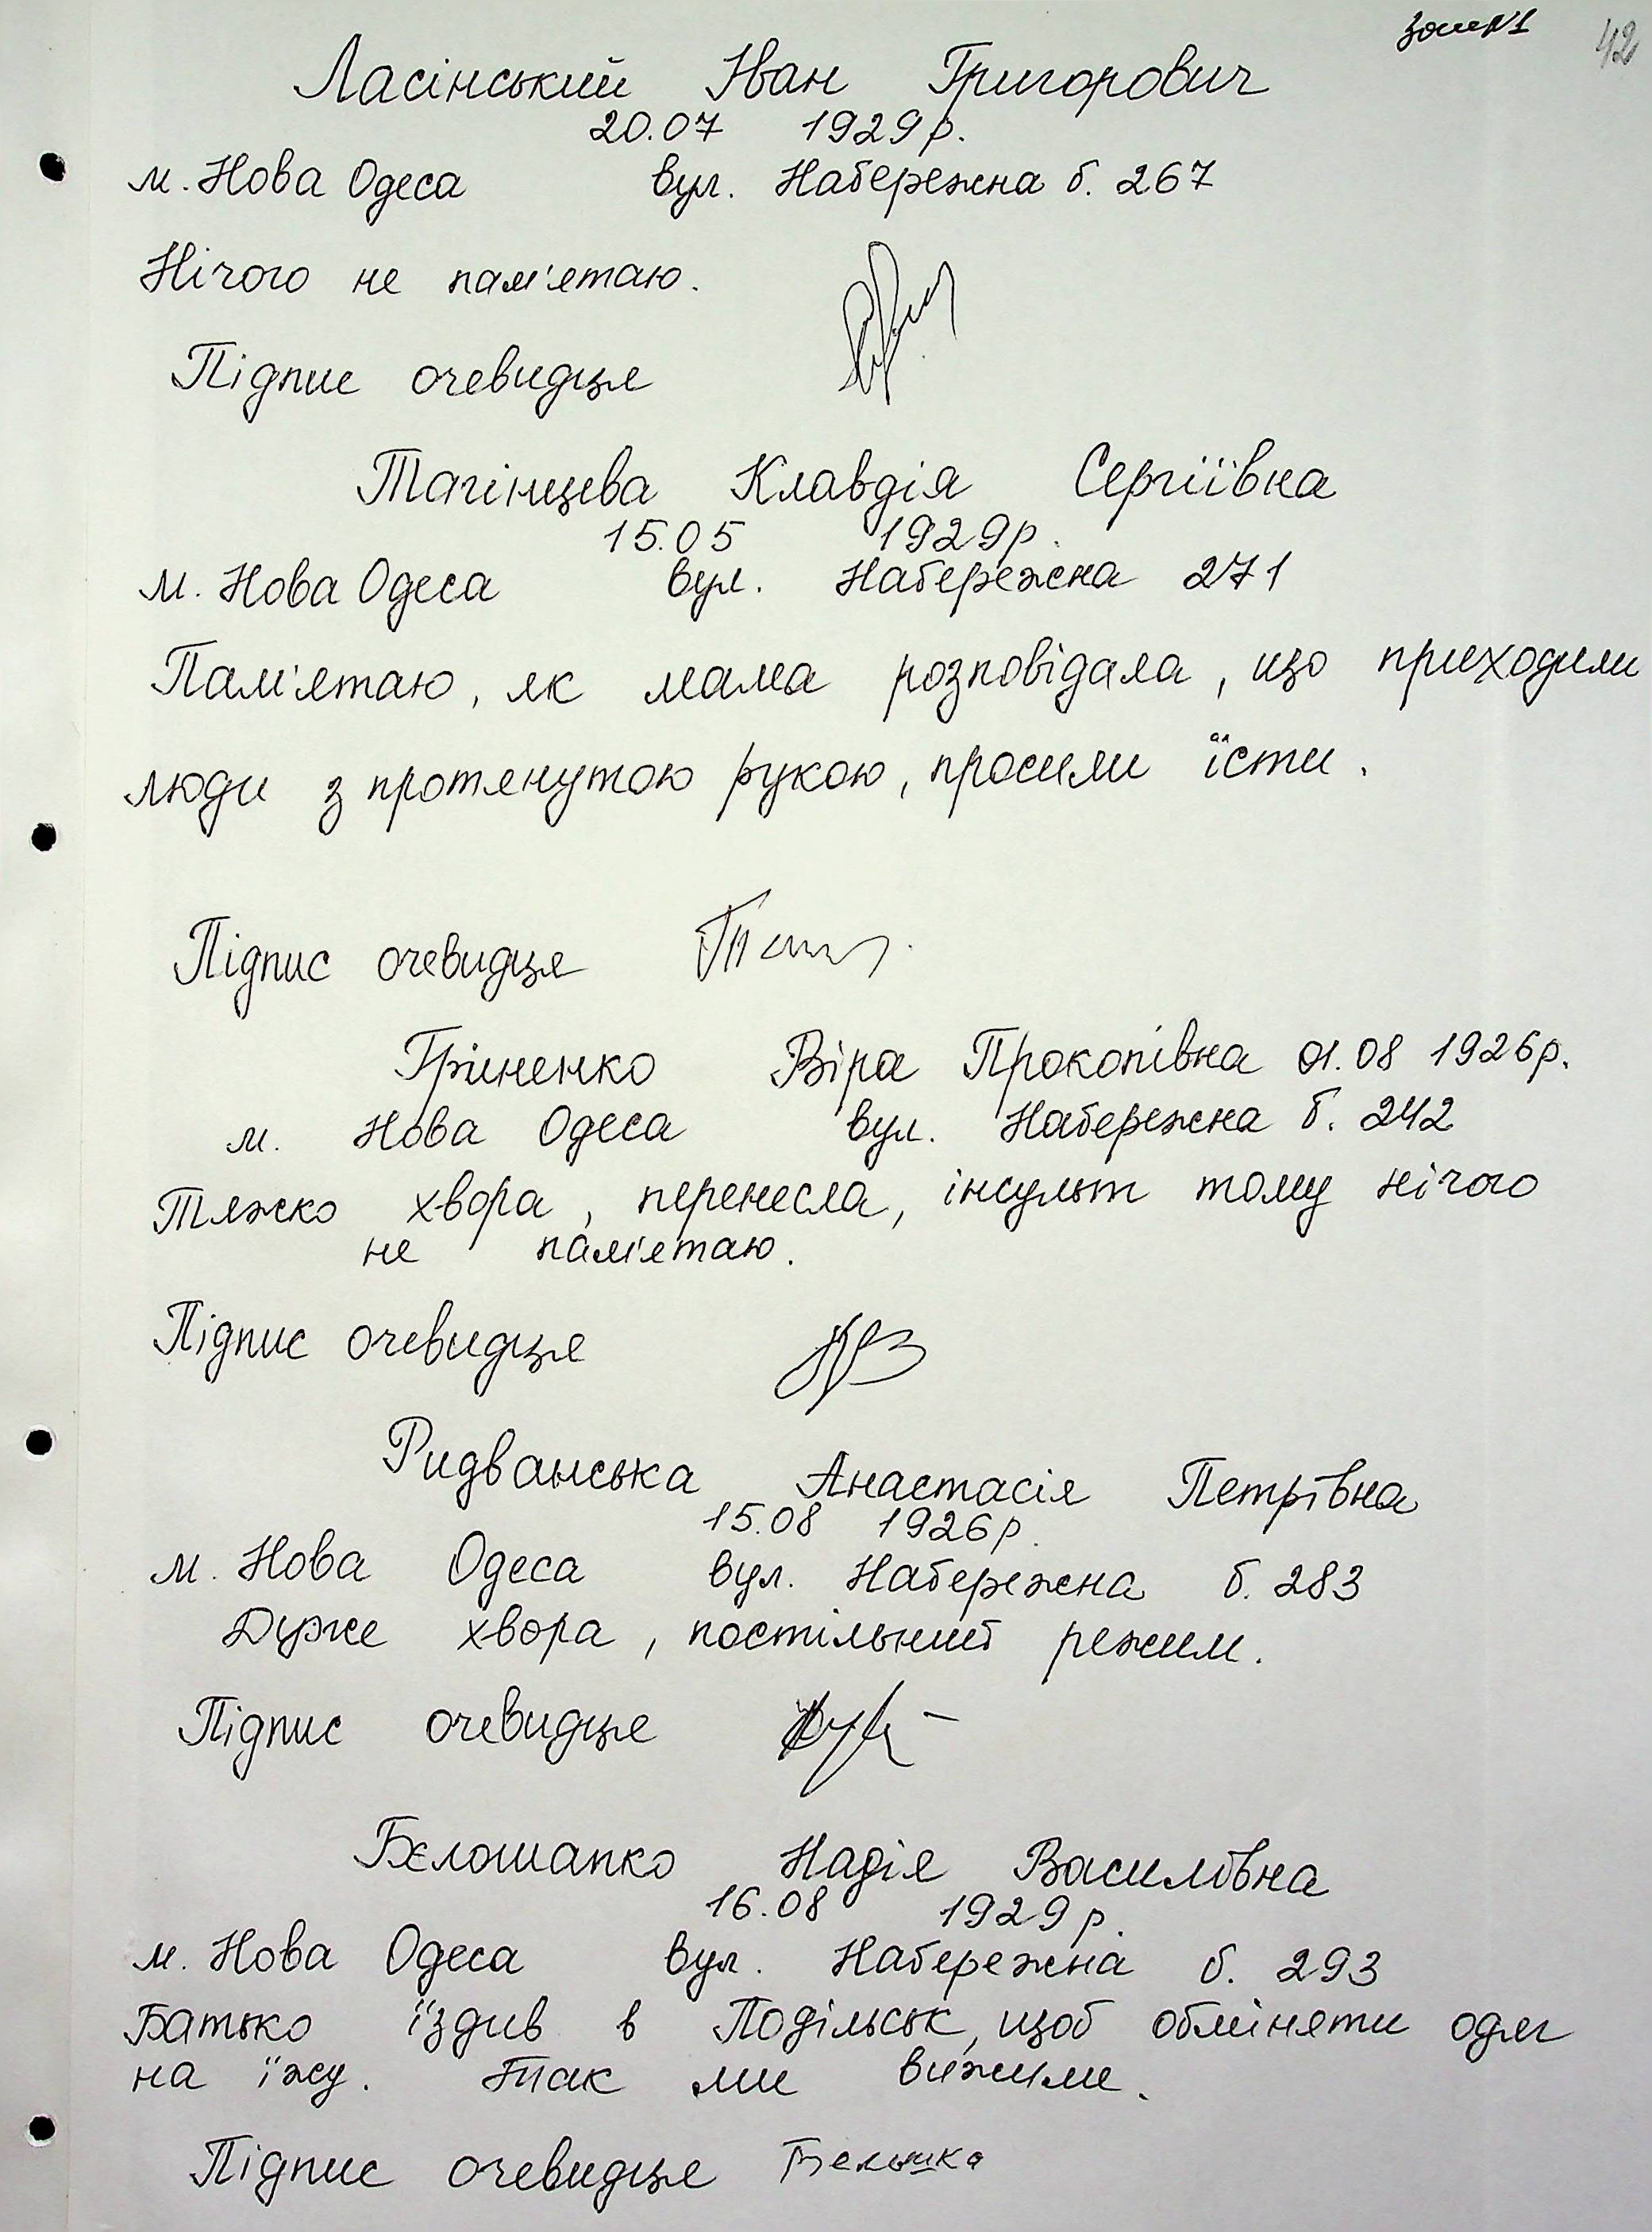 Зош №1 42
Ласінський Іван Григорович
20.07 1929р.
м. Нова Одеса вул. Набережна б. 267
Нічого не пам'ятаю.
Підпис очевидця
Тагінцева Клавдія Сергіївна
15.05 1929р.
м. Нова Одеса вул. Набережна 271
Пам'ятаю, як мама розповідала, що приходили
люди з протянутою рукою, просили їсти.
Підпис очевидця
Гріненко Віра Прокопівна 01.08 1926р.
м. Нова Одеса вул. Набережна б. 242
Тяжко хвора, перенесла, інсульт тому нічого
не пам'ятаю.
Підпис очевидця
Ридванська Анастасія Петрівна
15.08 1926р.
м. Нова Одеса вул. Набережна б. 283
Дуже хвора, постільний режим.
Підпис очевидця
Бєлошапко Надія Василівна
16.08 1929р.
м. Нова Одеса вул. Набережна б. 293
Батько їздив в Подільськ, щоб обміняти одяг
на їжу. Так ми вижили.
Підпис очевидця